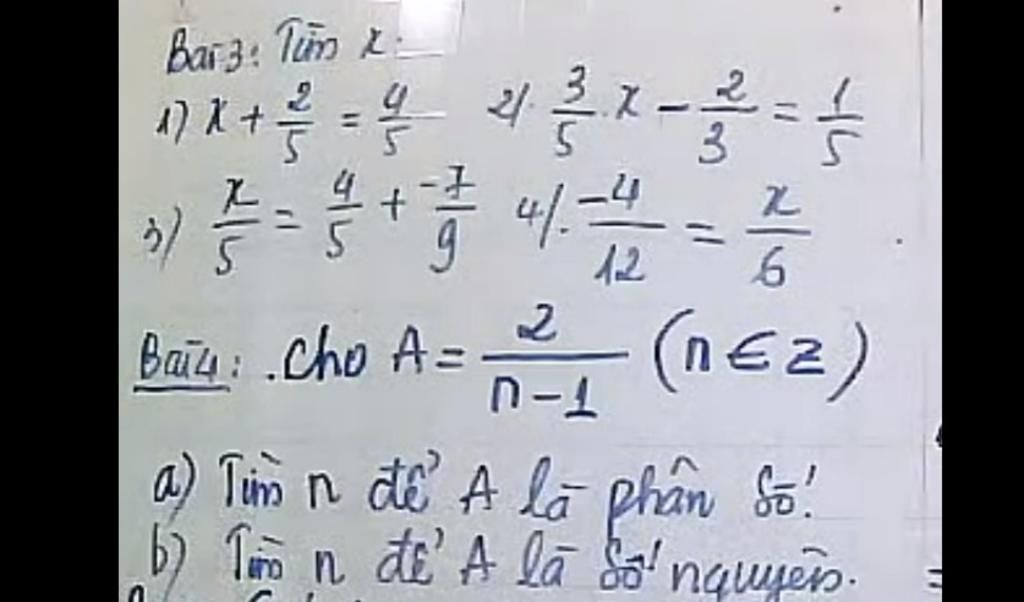 Bài 3: Tìm x:
1) x + 2/5 = 4/5 2/. 3/5 . x - 2/3 = 1/5
3) x/5 = 4/5 + -7/9 4/. -4/12 = x/6
Bài 4: . Cho A = 2/(n-1) (n ∈ Z)
a) Tìm n để A là phân số!
b) Tìm n để A là số nguyên.